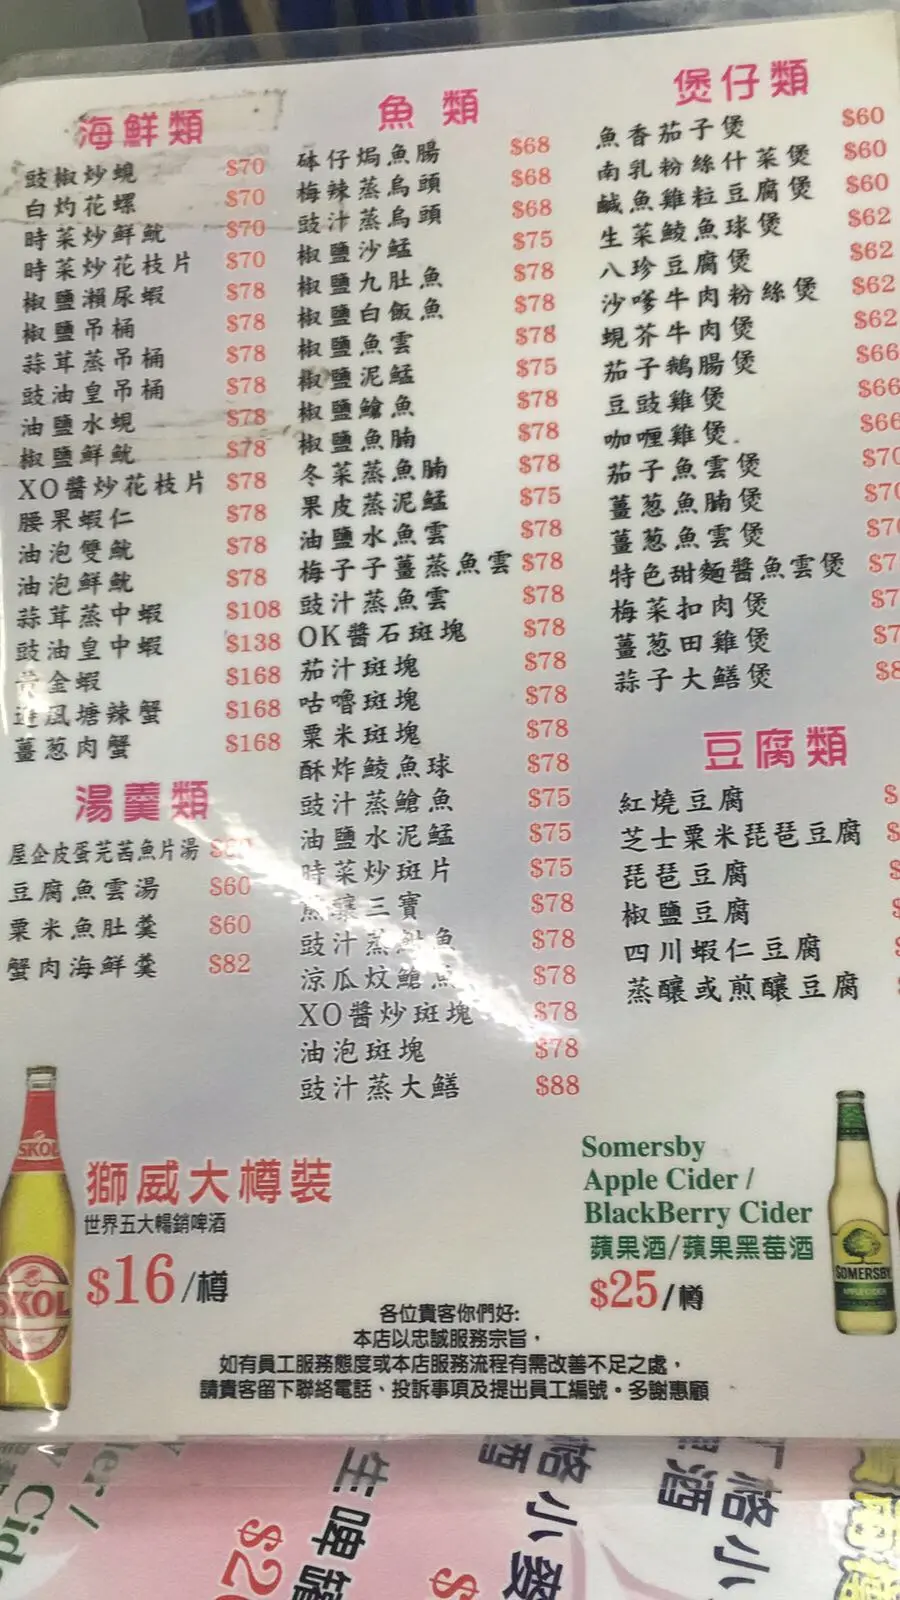 海鮮類
豉椒炒蜆 $70
白灼花螺 $70
時菜炒鮮魷 $70
時菜炒花枝片 $70
椒鹽瀨尿蝦 $78
椒鹽吊桶 $78
蒜茸蒸吊桶 $78
豉油皇吊桶 $78
油鹽水蜆 $78
椒鹽鮮魷 $78
XO醬炒花枝片 $78
腰果蝦仁 $78
油泡雙魷 $78
油泡鮮魷 $78
蒜茸蒸中蝦 $108
豉油皇中蝦 $138
黃金蝦 $168
避風塘辣蟹 $168
薑葱肉蟹 $168
湯羹類
屋企皮蛋芫茜魚片湯
豆腐魚雲湯 $60
粟米魚肚羹 $60
蟹肉海鮮羹 $82
魚類
砵仔焗魚腸 $68
梅辣蒸烏頭 $68
豉汁蒸烏頭 $68
椒鹽沙鯭 $75
椒鹽九肚魚 $78
椒鹽白飯魚 $78
椒鹽魚雲 $78
椒鹽泥鯭 $75
椒鹽鎗魚 $78
椒鹽魚腩 $78
冬菜蒸魚腩 $78
果皮蒸泥鯭 $75
油鹽水魚雲 $78
梅子子薑蒸魚雲 $78
豉汁蒸魚雲 $78
OK醬石斑塊 $78
茄汁斑塊 $78
咕嚕斑塊 $78
粟米斑塊 $78
酥炸鯪魚球 $78
豉汁蒸鎗魚 $75
油鹽水泥鯭 $75
時菜炒斑片 $75
煎釀三寶 $78
豉汁蒸魚 $78
涼瓜炆鎗魚 $78
XO醬炒斑塊 $78
油泡斑塊 $78
豉汁蒸大鱔 $88
煲仔類
魚香茄子煲 $60
南乳粉絲什菜煲 $60
鹹魚雞粒豆腐煲 $60
生菜鯪魚球煲 $62
八珍豆腐煲 $62
沙嗲牛肉粉絲煲 $62
蜆芥牛肉煲 $62
茄子鵝腸煲 $66
豆豉雞煲 $66
咖喱雞煲 $66
茄子魚雲煲 $70
薑葱魚腩煲 $70
薑葱魚雲煲 $70
特色甜麵醬魚雲煲 $7
梅菜扣肉煲 $7
薑葱田雞煲 $7
蒜子大鱔煲 $8
豆腐類
紅燒豆腐 $
芝士粟米琵琶豆腐 $
琵琶豆腐 $
椒鹽豆腐 $
四川蝦仁豆腐 $
蒸釀或煎釀豆腐 $
SKOL
SKOL
獅威大樽裝
世界五大暢銷啤酒
$16/樽
Somersby
Apple Cider /
BlackBerry Cider
蘋果酒/蘋果黑莓酒
$25/樽
SOMERSBY
APPLE CIDER
各位貴客你們好:
本店以忠誠服務宗旨，
如有員工服務態度或本店服務流程有需改善不足之處，
請貴客留下聯絡電話、投訴事項及提出員工編號。多謝惠顧
der /
Cid
生啤罐
$20
格小麥
酒
$
格小
果酒